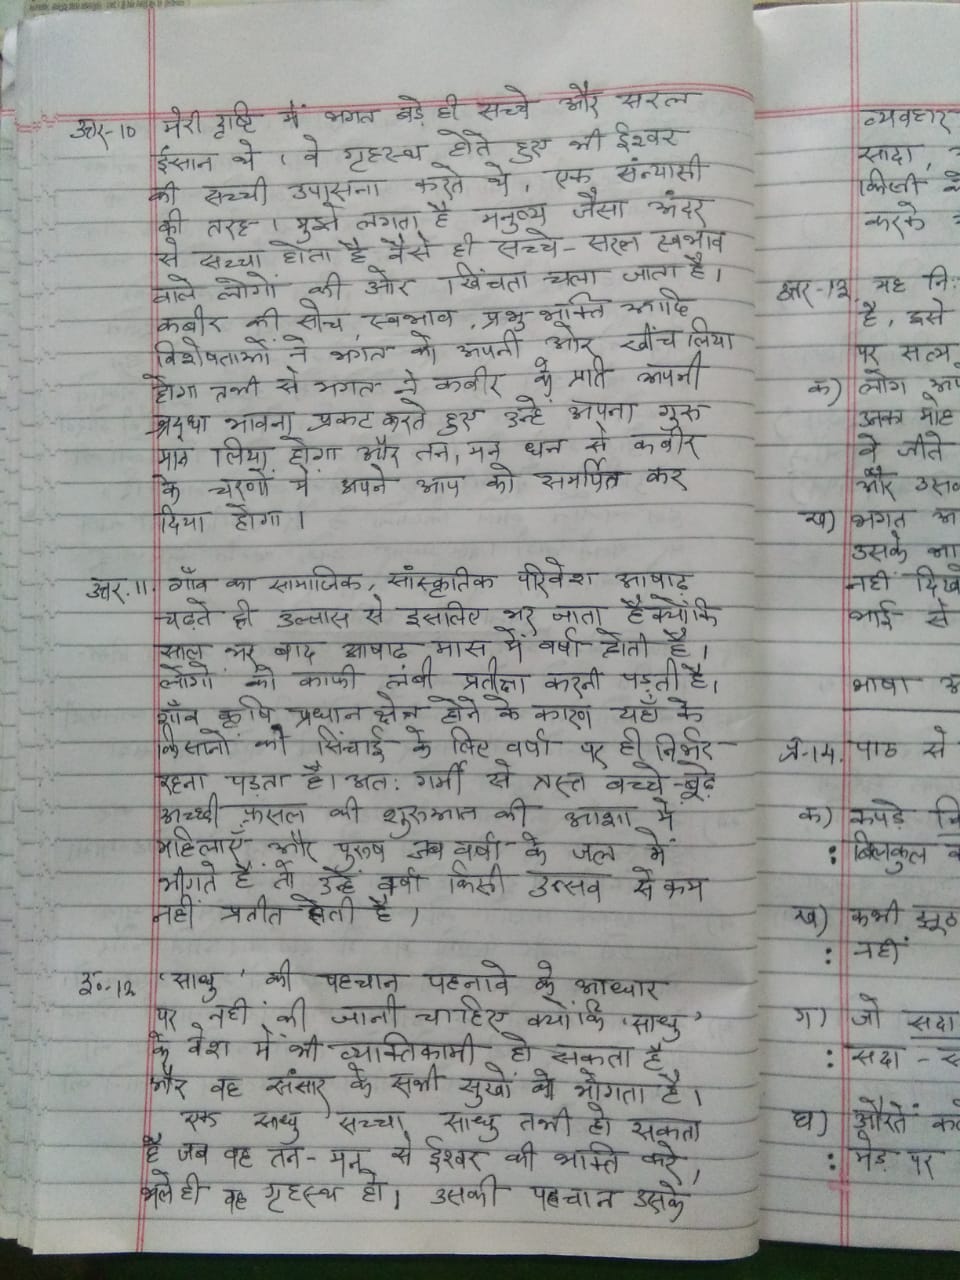 उत्तर-10 मेरी दृष्टि में भगत बड़े ही सच्चे और सरल
ईंसान थे। वे गृहस्थ होते हुए भी ईश्वर
की सच्ची उपासना करते थे, एक संन्यासी
की तरह। मुझे लगता है मनुष्य जैसा अंदर
से सच्चा होता है वैसे ही सच्चे-सरल स्वभाव
वाले लोगों की ओर खिंचता चला जाता है।
कबीर की सोच, स्वभाव, प्रभु-भक्ति आदि
विशेषताओं ने भगत को अपनी ओर खींच लिया
होगा तभी से भगत ने कबीर के प्रति अपनी
श्रद्धा भावना प्रकट करते हुए उन्हें अपना गुरु
मान लिया होगा और तन, मन धन से कबीर
के चरणों में अपने आप को समर्पित कर
दिया होगा।
उत्तर.11. गाँव का सामाजिक, सांस्कृतिक परिवेश आषाढ़
चढ़ते ही उल्लास से इसलिए भर जाता है क्योंकि
साल भर बाद आषाढ मास में वर्षा होती है।
लोगों को काफी लंबी प्रतीक्षा करनी पड़ती है।
गाँव कृषि प्रधान क्षेत्र होने के कारण यहाँ के
किसानों को सिंचाई के लिए वर्षा पर ही निर्भर
रहना पड़ता है। अत: गर्मी से त्रस्त बच्चे-बूढ़े
अच्छी फ़सल की शुरुआत की आशा में
महिलाएँ और पुरुष जब वर्षा के जल में
भीगते हैं तो उन्हें वर्षा किसी उत्सव से कम
नहीं प्रतीत होती है।
उ०-12 'साधु' की पहचान पहनावे के आधार
पर नहीं की जानी चाहिए क्योंकि 'साधु'
के वेश में भी व्यक्ति कामी हो सकता है
और वह संसार के सभी सुखों को भोगता है।
एक साधु सच्चा साधु तभी हो सकता
है जब वह तन-मन से ईश्वर की भक्ति करे,
भले ही वह गृहस्थ हो। उसकी पहचान उसके
व्यवहार
सादा,
किसी
करके
उत्तर-13 यह
है, इसे
पर सत्य
क) लोग
उनका मोह
वे जीते
और
ख) भगत
उसके
नहीं
भाई से
भाषा
प्र-14. पाठ से
क) कपड़े
: बिल्कुल
ख) कभी झूठ
: नहीं
ग) जो सदा
: सदा -
घ) औरतें
: मेड़ पर